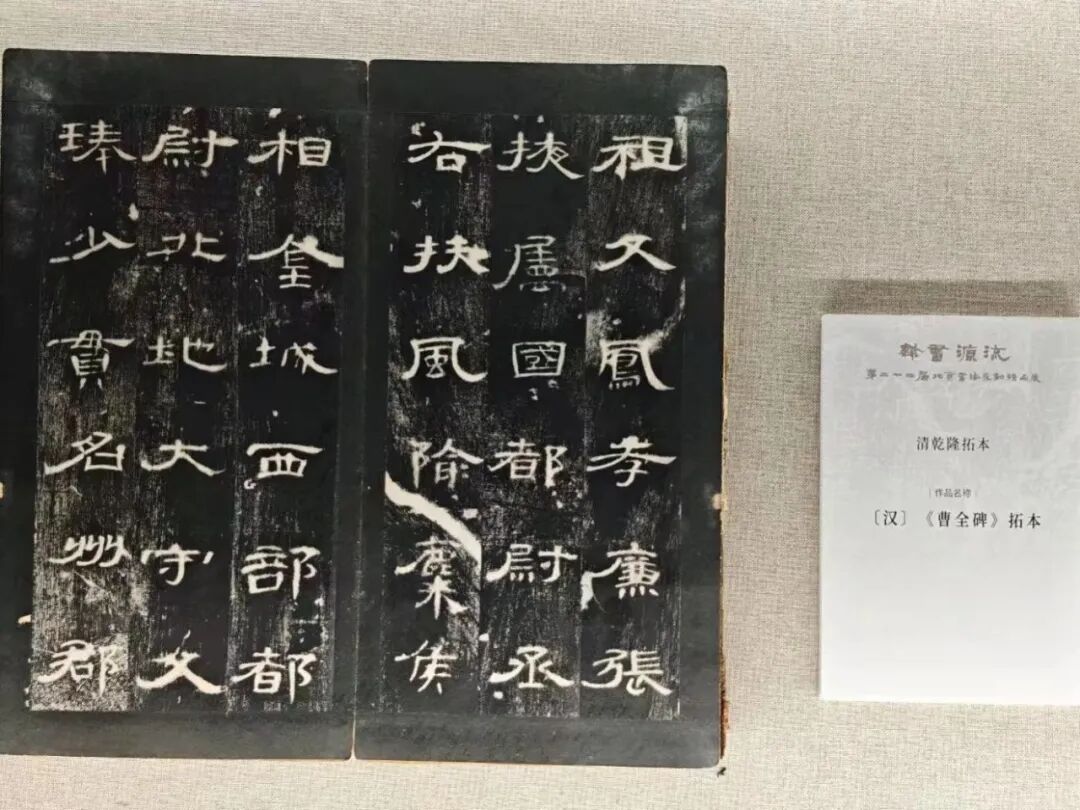 祖父鳳孝廉張
掖屬國都尉丞
右扶風隃麋侯
相金城西部都
尉北地大守父
琫少貫名州郡
書源流
第二十四届北京書法
清乾隆拓本
|作品名称|
〔汉〕《曹全碑》拓本